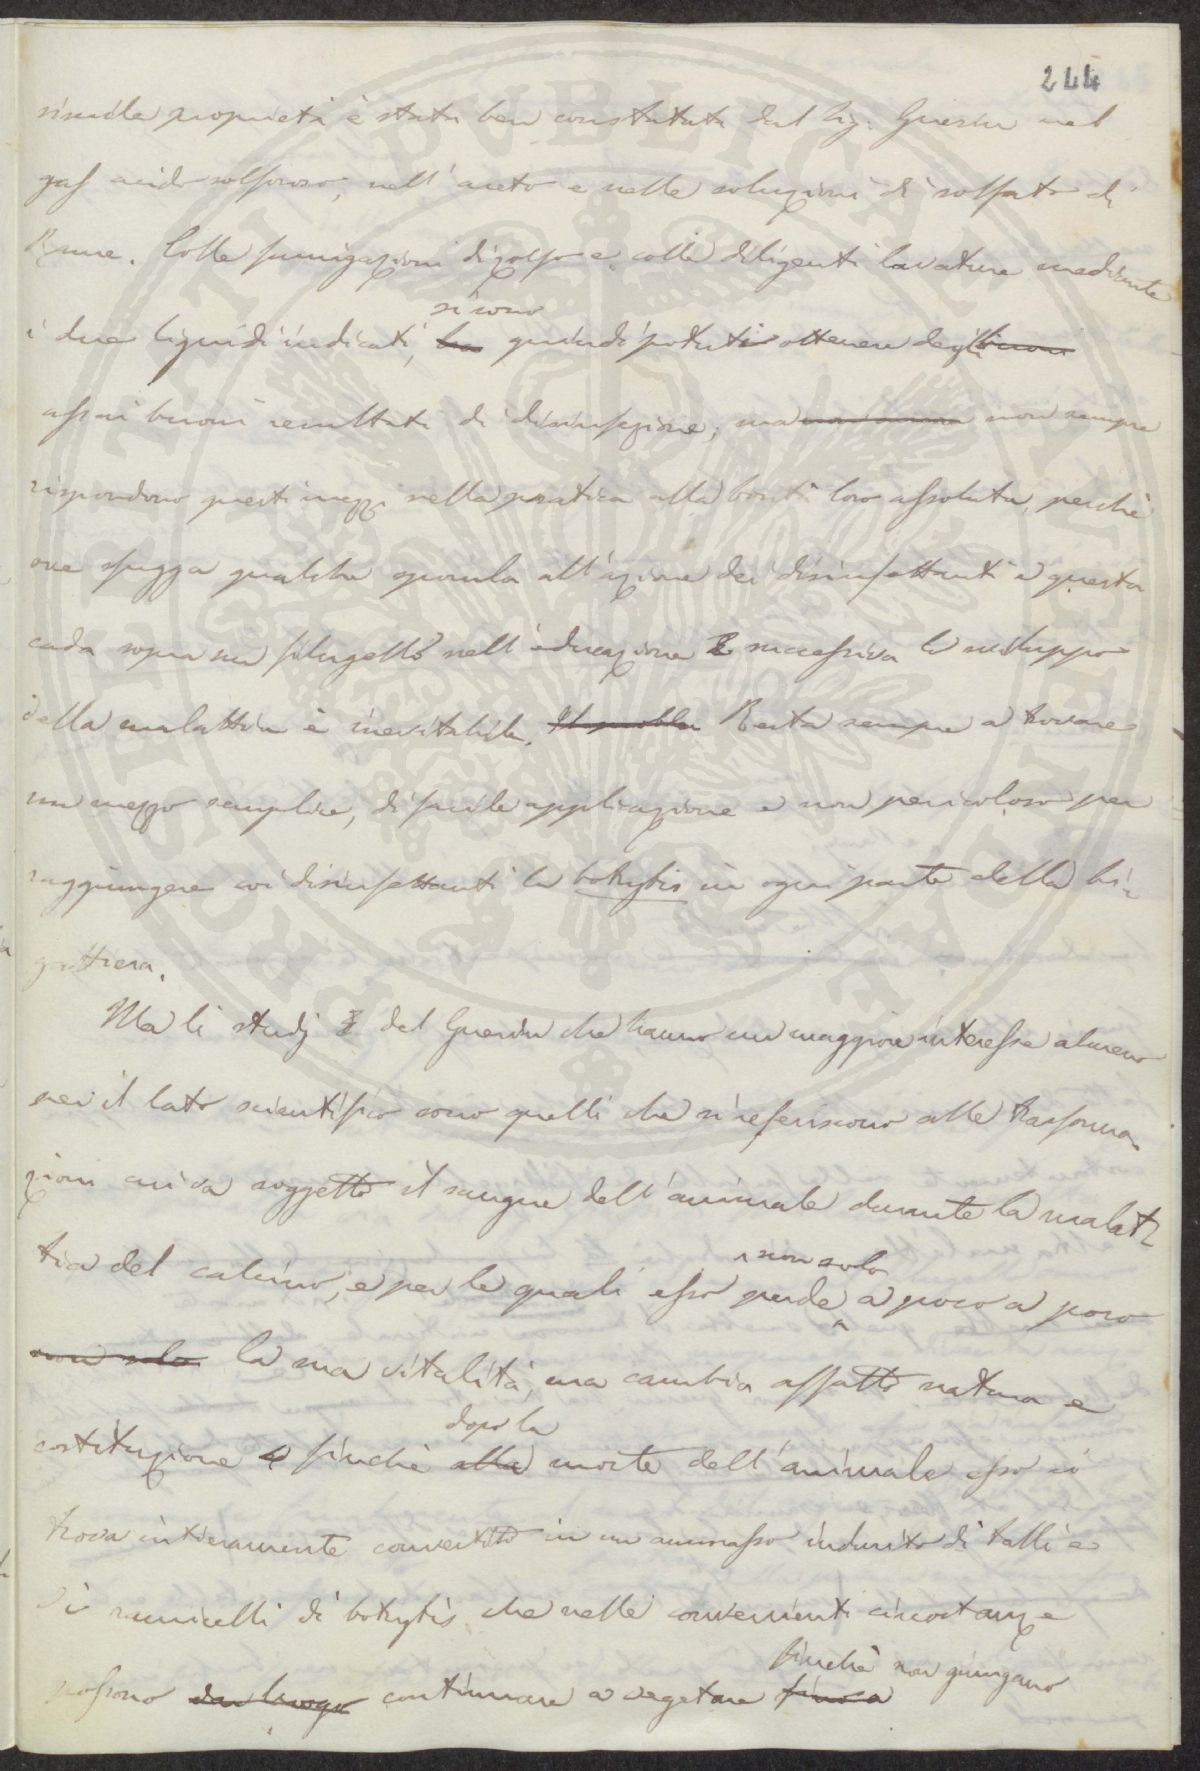 244
simile proprietà è stata ben constatata dal Sig: Guerin nel
gaſ acido solforoso, nell'aceto e nelle soluzioni di solfato di
Rame. Colle fumigazioni di zolfo e colle diligenti lavature mediante
si sono
i due liquidi indicati, ha quindi potuti ottenere degli buoni
aſsai buoni resultati di disinfezione; ma non sempre
rispondono questi mezzi nella pratica alla bontà loro aſsoluta, perchè
ove sfugga qualche sporula all'azione dei disinfettanti e questa
cada sopra un filugello nell'educazione succeſsiva lo sviluppo
della malattia è inevitabile. Il proble Resta sempre a trovare
un mezzo semplice, di facile applicazione e non pericoloso per
raggiungere coi disinfettanti la botrytis in ogni parte della bi-
gattiera.
Ma li studj del Guerin che hanno un maggiore intereſse almeno
per il lato scientifico sono quelli che si riferiscono alle trasforma-
zioni cui va soggetto il sangue dell'animale durante la malat-
non solo
tia del calcino, e per le quali eſso perde a poco a poco
non solo la sua vitalità, ma cambia affatto natura e
dopo la
costituzione finchè alla morte dell'animale eſso si
trova intieramente convertito in un ammaſso indurito di talli e
di ramicelli di botrytis che nelle convenienti circostanze
finchè non giungano
poſsono dar luogo continuare a vegetare fino a